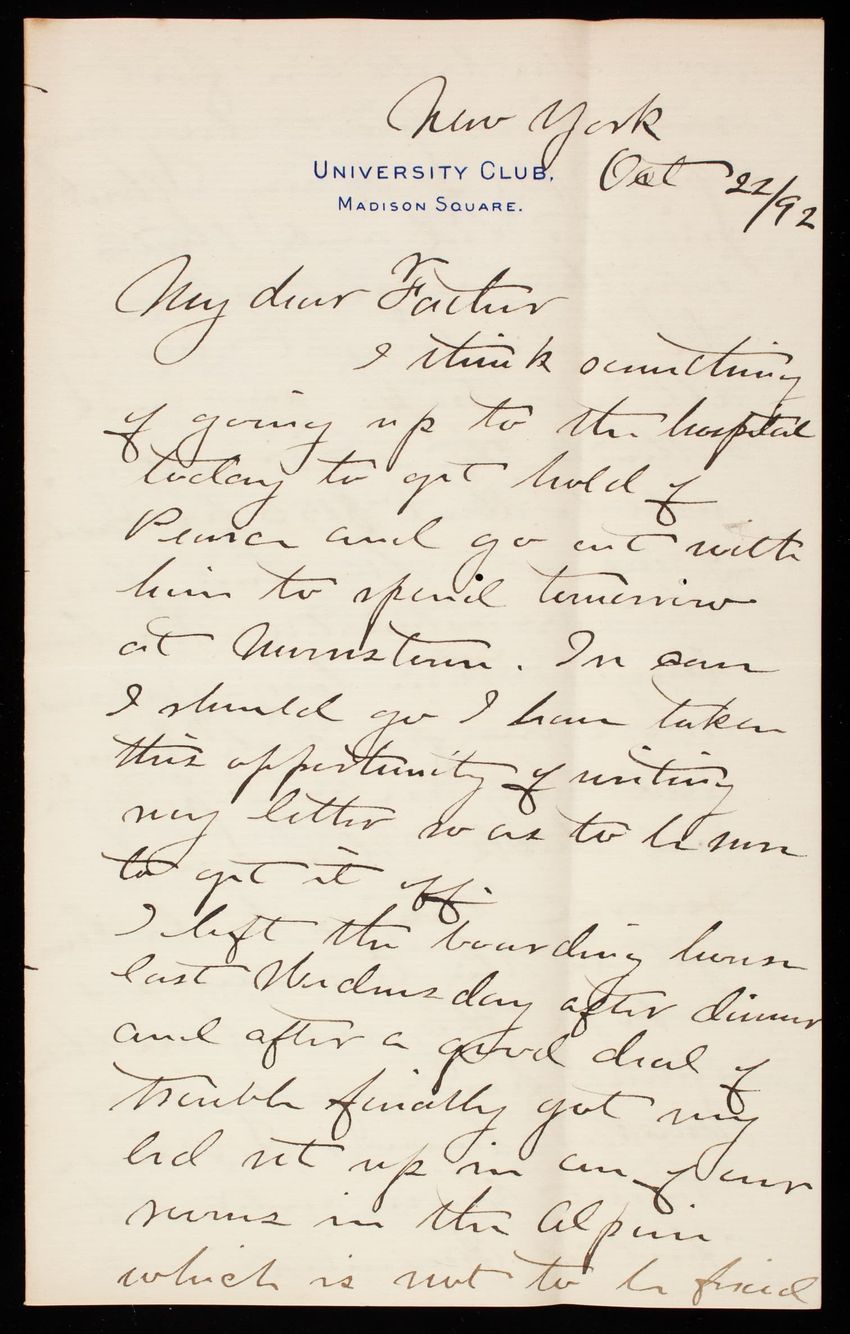 New York
UNIVERSITY CLUB,
MADISON SQUARE.
Oct 22/92
My dear Father
I think something
of going up to the hospital
today to get hold of
Pearce and go out with
him to spend tomorrow
at Morristown. In case
I should go I have taken
this opportunity of writing
my letter so as to be sure
to get it off.
I left the boarding house
last Wednesday after dinner
and after a good deal of
trouble finally got my
bed set up in one of our
rooms in the Alpine
which is not to be fixed